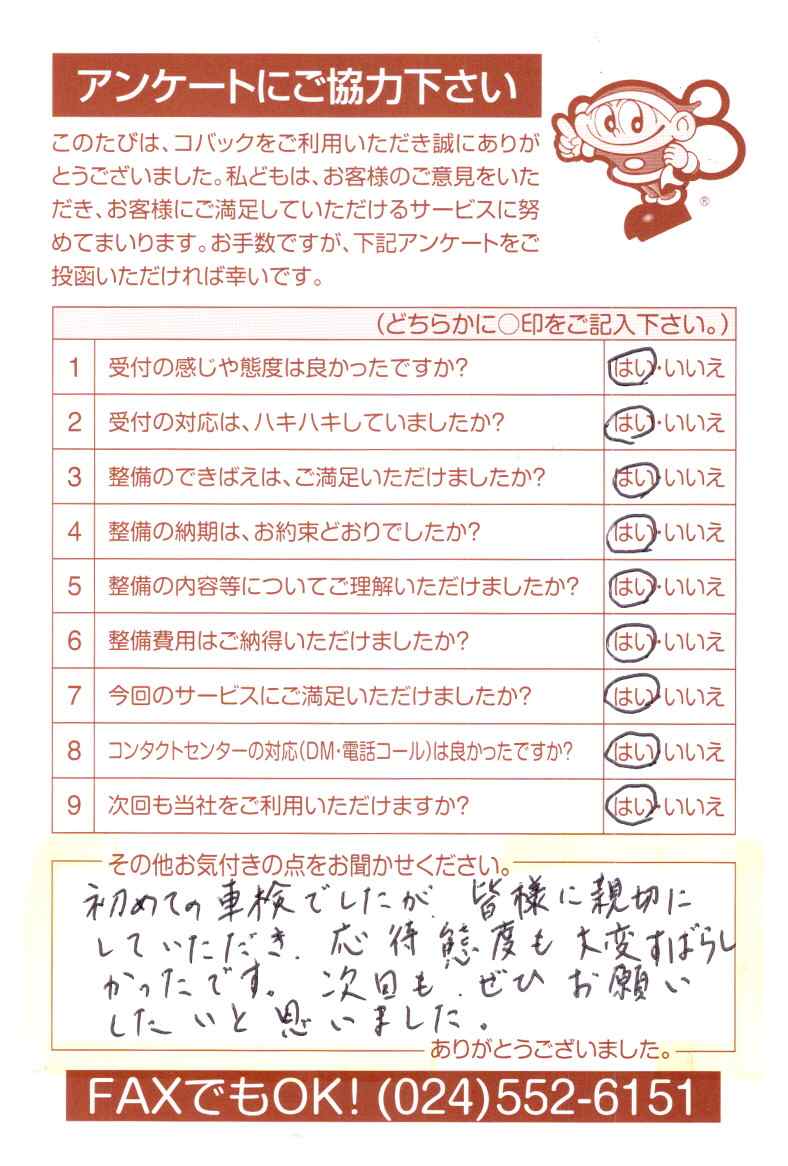 アンケートにご協力下さい
このたびは、コバックをご利用いただき誠にありが
とうございました。私どもは、お客様のご意見をいた
だき、お客様にご満足していただけるサービスに努
めてまいります。お手数ですが、下記アンケートをご
投函いただければ幸いです。
®
(どちらかに○印をご記入下さい。)
1 受付の感じや態度は良かったですか? はい・いいえ
2 受付の対応は、ハキハキしていましたか? はい・いいえ
3 整備のできばえは、ご満足いただけましたか? はい・いいえ
4 整備の納期は、お約束どおりでしたか? はい・いいえ
5 整備の内容等についてご理解いただけましたか? はい・いいえ
6 整備費用はご納得いただけましたか? はい・いいえ
7 今回のサービスにご満足いただけましたか? はい・いいえ
8 コンタクトセンターの対応(DM・電話コール)は良かったですか? はい・いいえ
9 次回も当社をご利用いただけますか? はい・いいえ
その他お気付きの点をお聞かせください。
初めての車検でしたが、皆様に親切に
していただき、応待態度も大変すばらし
かったです。次回も、ぜひお願い
したいと思いました。
ありがとうございました。
FAXでもOK! (024)552-6151